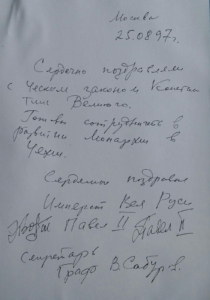 Москва
25.08.97г.
Сердечно поздравляем
с Чешским законом Констан
тин Великого.
Готовы сотрудничать в
развитии Монархии в
Чехии.
Сердечно поздравляя
Император Всея Руси
Павел II Павел II
Секретарь
Граф В Сабуров.